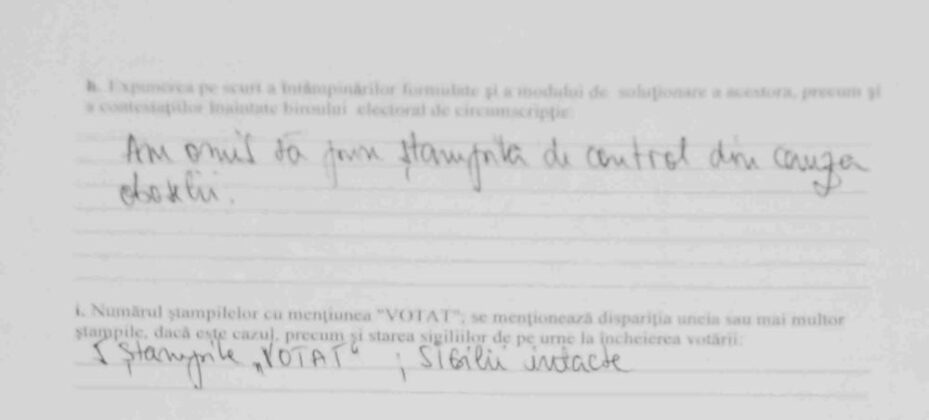 h. Expunerea pe scurt a întâmpinărilor formulate şi a modului de soluţionare a acestora, precum şi
a contestaţiilor înaintate biroului electoral de circumscripţie:
Am omis să pun ştampila de control din cauza
oboselii.
i. Numărul ştampilelor cu menţiunea "VOTAT"; se menţionează dispariţia uneia sau mai multor
ştampile, dacă este cazul, precum şi starea sigiliilor de pe urne la încheierea votării:
5 ştampile „VOTAT“ ; SIGilii intacte